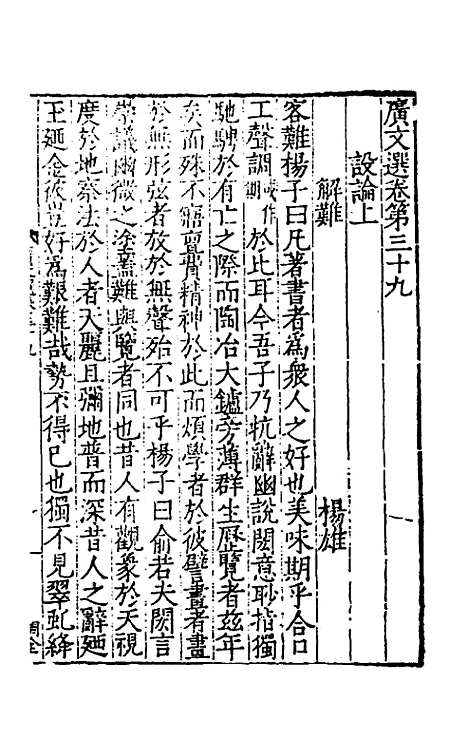 廣文選卷第三十九
設論上
解難 楊雄
客難楊子曰凡著書者為衆人之好也美味期乎合口
工聲調於比耳今吾子乃抗辭幽說閎意眇指獨
馳騁於有亡之際而陶冶大鑪旁薄群生歷覽者茲年
矣而殊不寤亶費精神於此而煩學者於彼譬畫者畫
於無形弦者放於無聲殆不可乎楊子曰俞若夫閎言
崇議幽微之塗蓋難與覽者同也昔人有觀象於天視
度於地察法於人者天麗且彌地普而深昔人之辭廼
玉廼金彼豈好為艱難哉勢不得已也獨不見翠虬絳